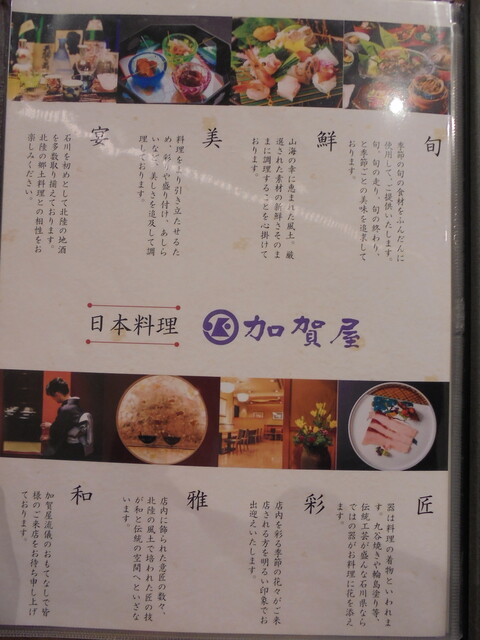 旬
季節の旬の食材をふんだんに
使用して、ご提供いたします。
旬、旬の走り、旬の終わり。
と季節ごとの美味を追求して
おります。
鮮
山海の幸に恵まれた風土。厳
選された素材の新鮮さそのま
まに調理することを心掛けて
おります。
美
料理をより引き立たせるた
め、彩りや盛り付け、あしら
いなどで美しさを追及して調
理しております。
宴
石川を初めとして北陸の地酒
を多数取り揃えております。
北陸の郷土料理との相性をお
楽しみください。
日本料理
加賀屋
匠
器は料理の着物といわれま
す。九谷焼きや輪島塗り等、
伝統工芸が盛んな石川県なら
ではの器がお料理に花を添え
ます。
彩
店内を彩る季節の花々がご来
店される方を明るい印象でお
出迎えいたします。
雅
店内に飾られた意匠の数々。
北陸の風土で培われた匠の技
が和と伝統の空間へといざな
います。
和
加賀屋流儀のおもてなしで皆
様のご来店をお待ち申し上げ
ております。